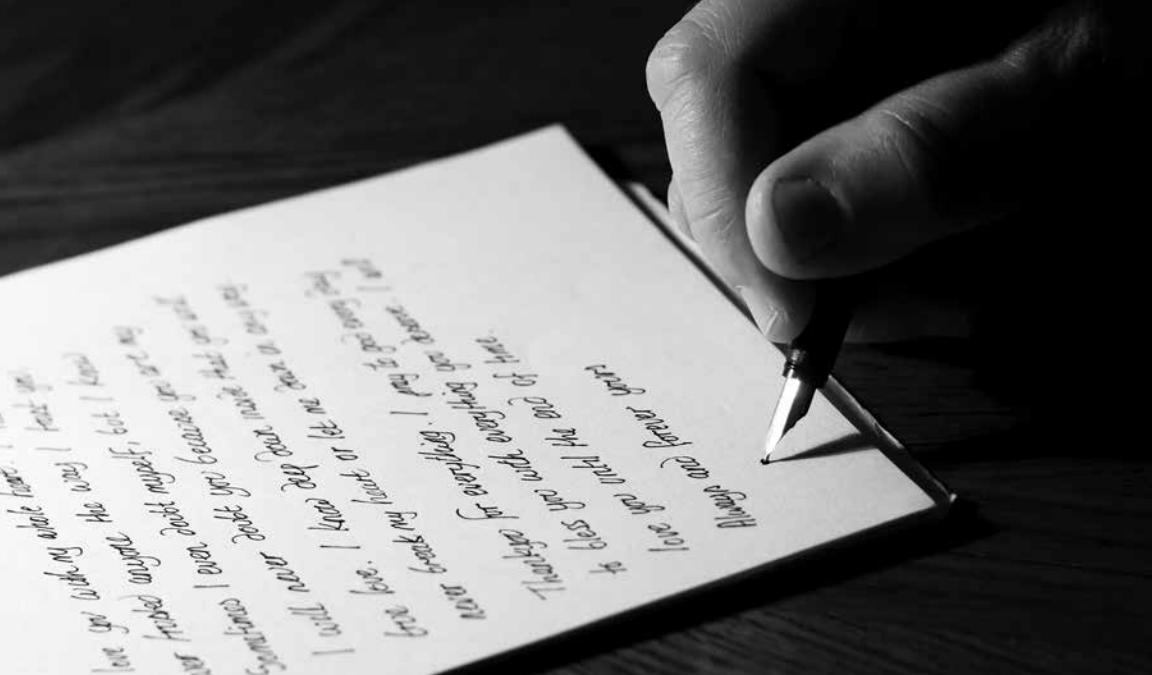 love you with my whole
ever trusted anyone the way I trust you.
Sometimes I even doubt myself, but I know
I will never doubt you because you are my
true love. I know deep down inside that you will
never break my heart or let me down in any way.
Thankyou for everything. I pray to god every day
to bless you with everything you desire. I will
love you until the end of time.
Always and forever yours